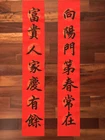 向陽門第春常在
富貴人家慶有餘